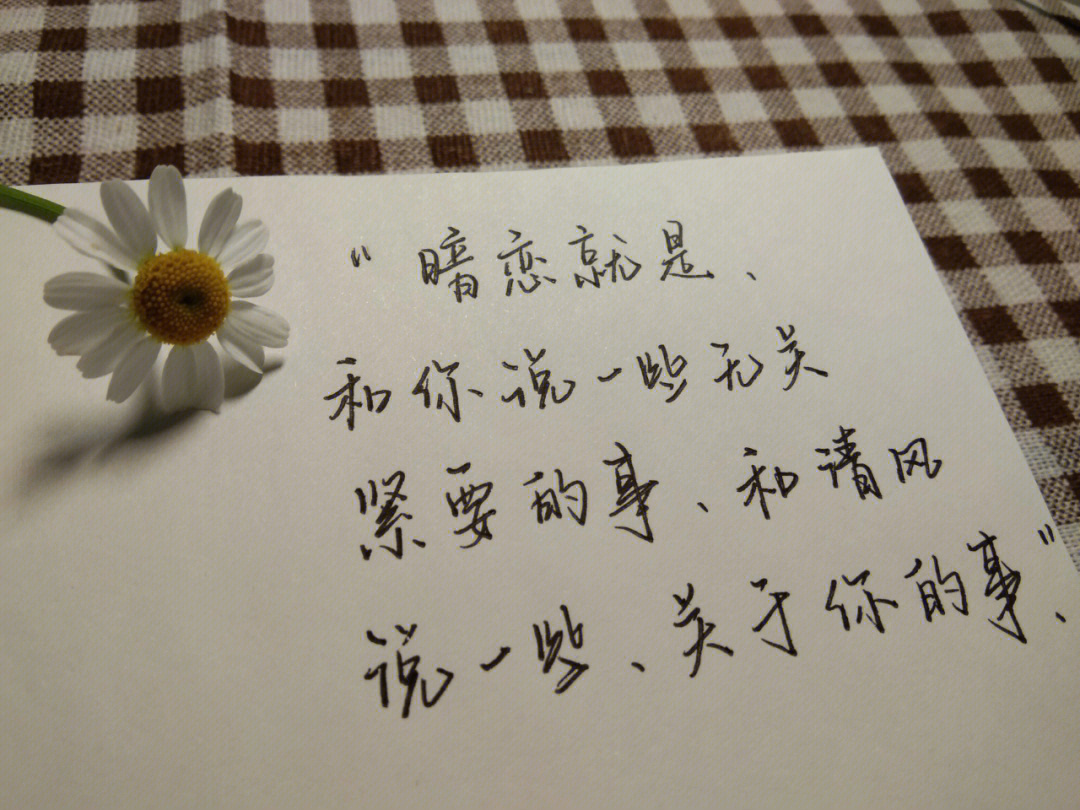 “暗恋就是、
和你说一些无关
紧要的事、和清风
说一些、关于你的事、”